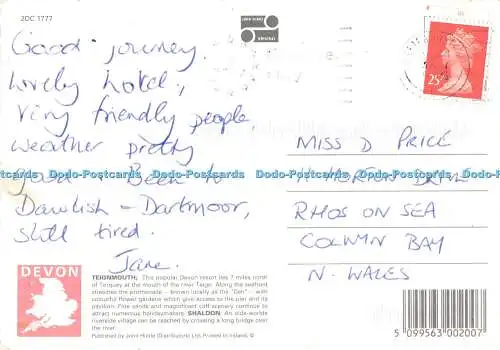 2DC 1777
Good journey.
Lovely hotel,
Very friendly people
weather pretty
good. Been to
Dawlish - Dartmoor,
still tired.
Jane.
25
MISS D PRICE
RHOS ON SEA
COLWYN BAY
N. WALES
Dodo-Postcards Dodo-Postcards Dodo-Postcards Dodo-Postcards Dodo-Postcards
DEVON
TEIGNMOUTH: This popular Devon resort lies 7 miles north
of Torquay at the mouth of the river Teign. Along the seafront
stretches the promenade — known locally as the "Den" — with
colourful flower gardens which give access to the pier and its
pavilion. Fine sands and magnificent cliff scenery combine to
attract numerous holidaymakers. SHALDON: An olde-worlde
riverside village can be reached by crossing a long bridge over
the river.
Published by John Hinde (Distributors) Ltd. Printed in Ireland. ©
5 099563 002007